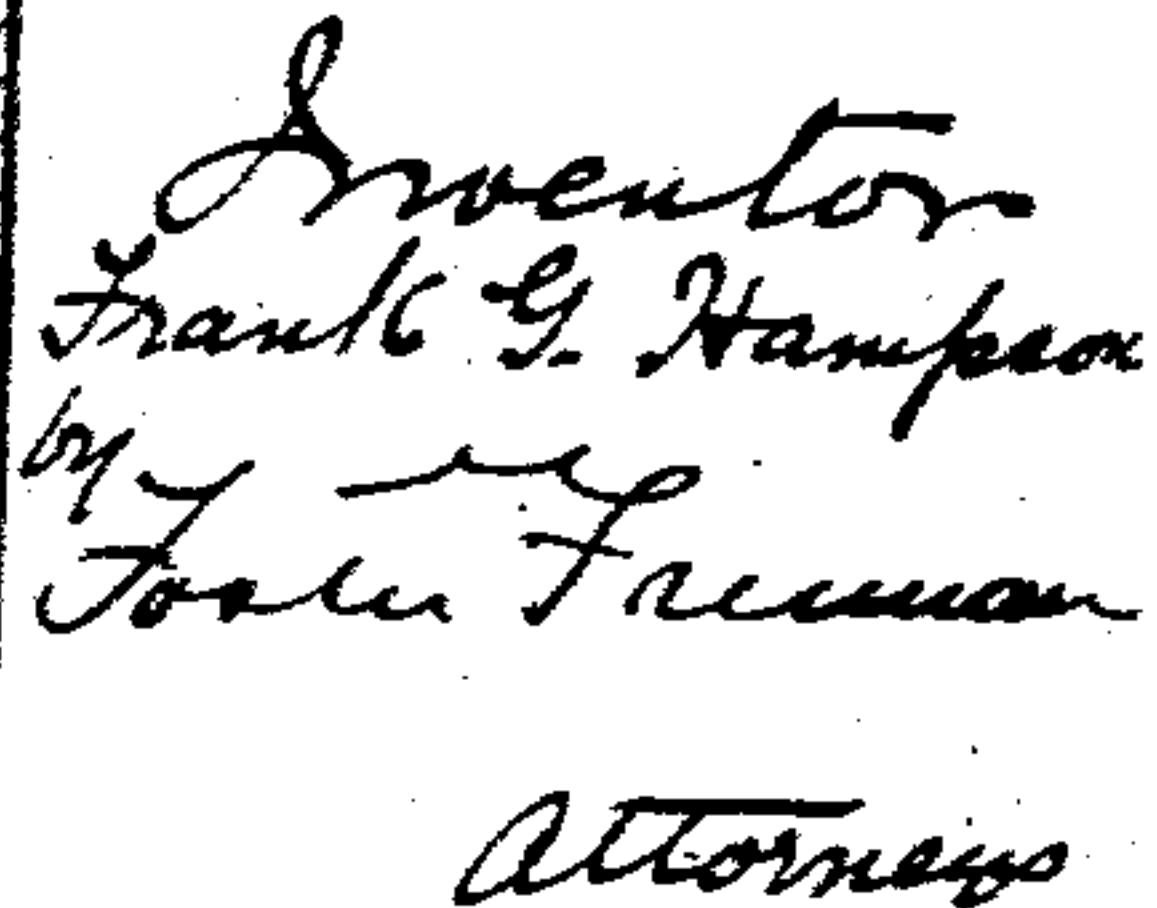 Inventor
Frank G. Hampson
by
Foster Freeman
Attorneys